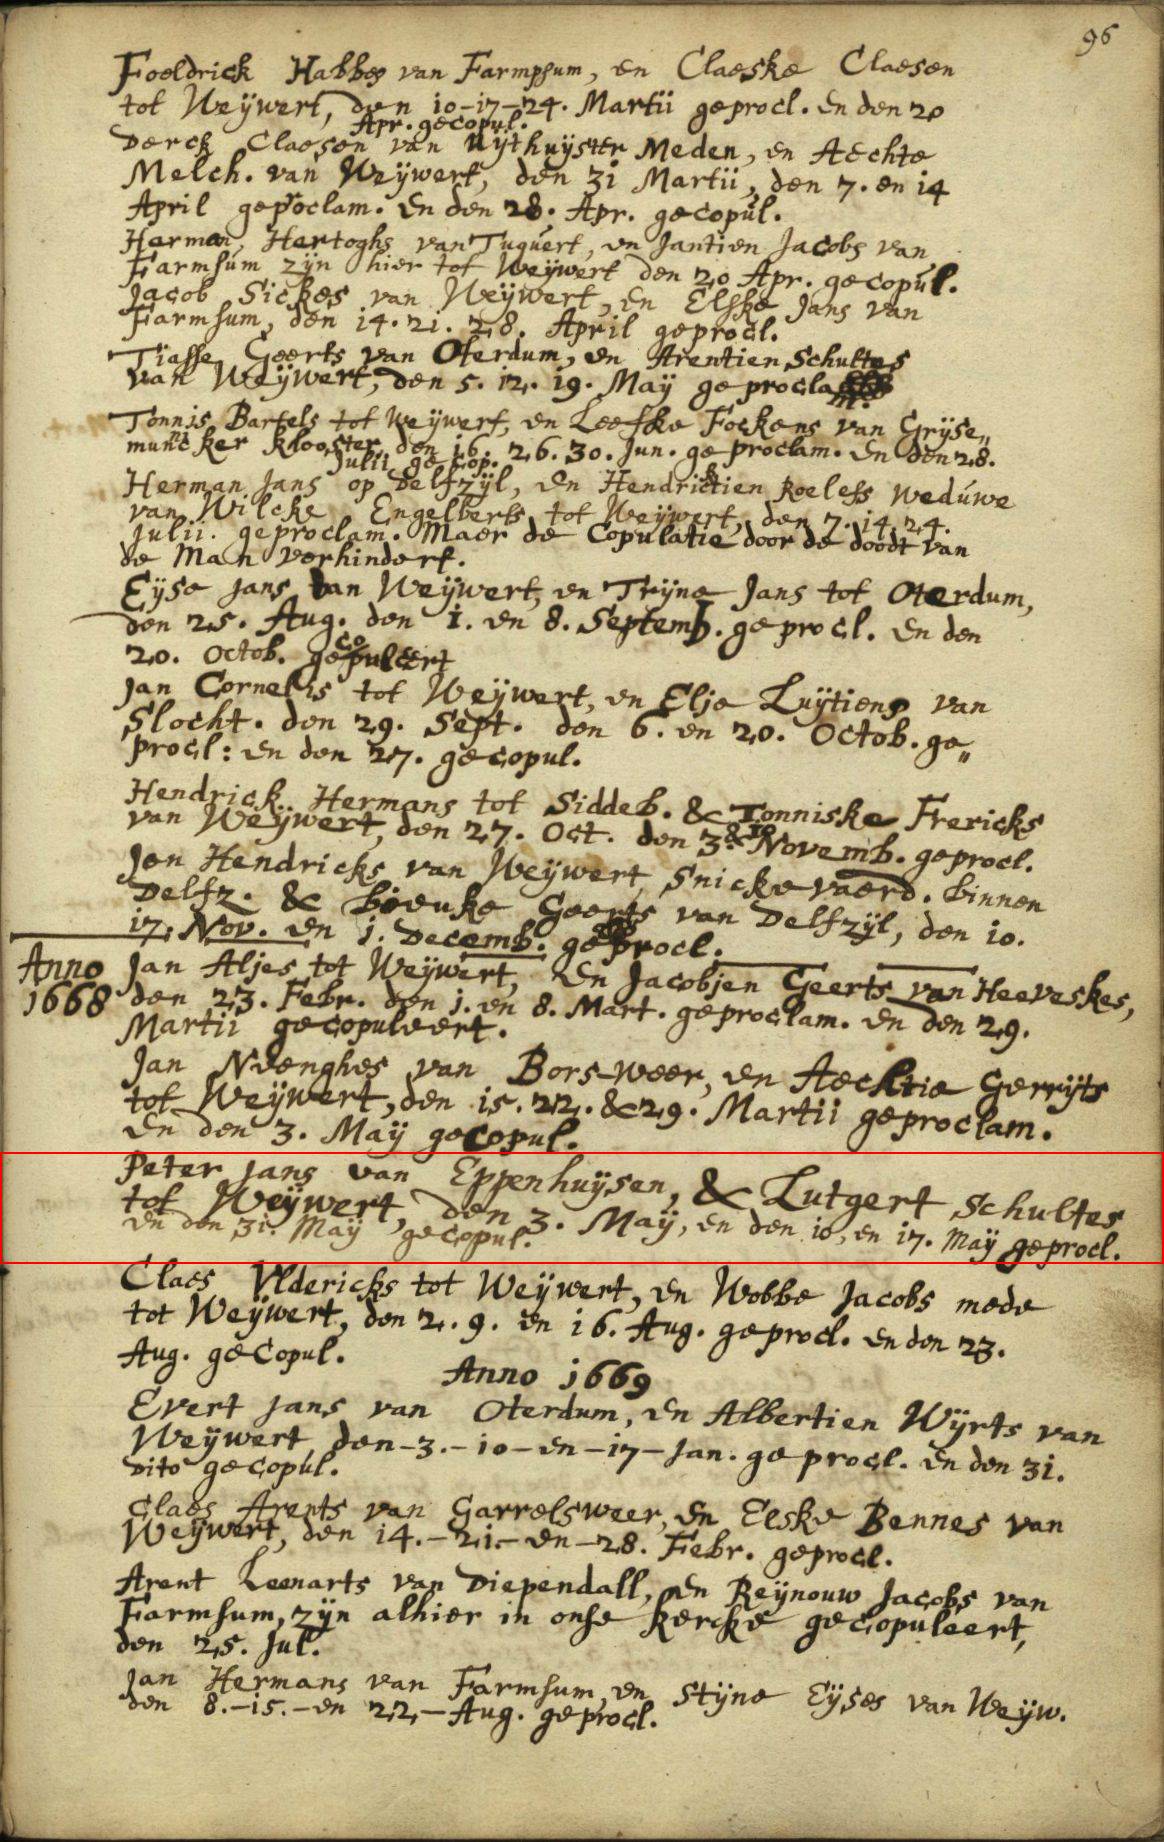 96
Foeldrick Habbes van Farmpsum, en Claeske Claesen
tot Weÿwert, den 10-17-24. Martii geprocl. en den 20
Apr. gecopul.
Derck Claesen van Uÿthuÿster Meden, en Aechte
Melch. van Weÿwert, den 31 Martii, den 7. en 14
April geproclam. En den 28. Apr. gecopul.
Herman Hertoghs van Tuquert, en Jantien Jacobs van
Farmsum zÿn hier tot Weÿwert den 20 Apr. gecopul.
Jacob Sickes van Weÿwert, en Elske Jans van
Farmsum, den 14. 21. 28. April geprocl.
Tiasse Geerts van Oterdum, en Arentien Schultes
van Weÿwert, den 5. 12. 19. Maÿ geproclam.
Tonnis Bartels tot Weÿwert, en Leefke Fockens van Grÿse„
muncker klooster, den 16. 26. 30. Jun. geproclam. en den 28.
Julii gecop.
Herman Jans op Delfzÿl, en Hendrickien Roelefs weduwe
van Wilcke Engelberts tot Weÿwert, den 7. 14. 24.
Julii. geproclam. Maer de Copulatie door de doodt van
de Man verhindert.
Eÿse Jans van Weÿwert, en Trÿne Jans tot Oterdum,
den 25. Aug. den 1. en 8. Septemb. geprocl. en den
20. Octob. gecopuleert
Jan Cornelis tot Weÿwert, en Elje Luÿtiens van
Slocht. den 29. Sept. den 6. en 20. Octob. ge„
procl: en den 27. gecopul.
Hendrick Hermans tot Siddeb. & Tonniske Frericks
van Weÿwert, den 27. Oct. den 3. & 10 Novemb. geprocl.
Jan Hendricks van Weÿwert, Snickevaerd. binnen
Delfz. & Bieuke Geerts van Delfzÿl, den 10.
17. Nov. en 1. Decemb. geprocl.
Anno Jan Aljes tot Weÿwert, en Jacobjen Geerts van Heeveskes,
1668 den 23. Febr. den 1. en 8. Mart. geproclam. en den 29.
Martii gecopuleert.
Jan Neenghes van Bors-weer, en Aechtie Gerrÿts
tot Weÿwert, den 15. 22. & 29. Martii geproclam.
en den 3. Maÿ gecopul.
Peter Jans van Eppenhuÿsen, & Lutgert Schultes
tot Weÿwert, den 3. Maÿ, en den 10, en 17. Maÿ geprocl.
en den 31. Maÿ gecopul.
Claes Vldericks tot Weÿwert, en Wobbe Jacobs mede
tot Weÿwert, den 2. 9. en 16. Aug. geprocl. en den 23.
Aug. gecopul.
Anno 1669
Evert Jans van Oterdum, en Albertien Wÿrts van
Weÿwert, den-3.-10-en-17-Jan. geprocl. en den 31.
Dito gecopul.
Claes Arents van Garrelsweer, en Elske Bennes van
Weÿwert, den 14.-21.-en-28. Febr. geprocl.
Arent Leenarts van Diependall, en Reÿnouw Jacobs van
Farmsum, zÿn alhier in onse kercke gecopuleert,
den 25. Jul.
Jan Hermans van Farmsum, en Stÿne Eÿses van Weÿw.
den 8.-15.-en 22-Aug. geprocl.